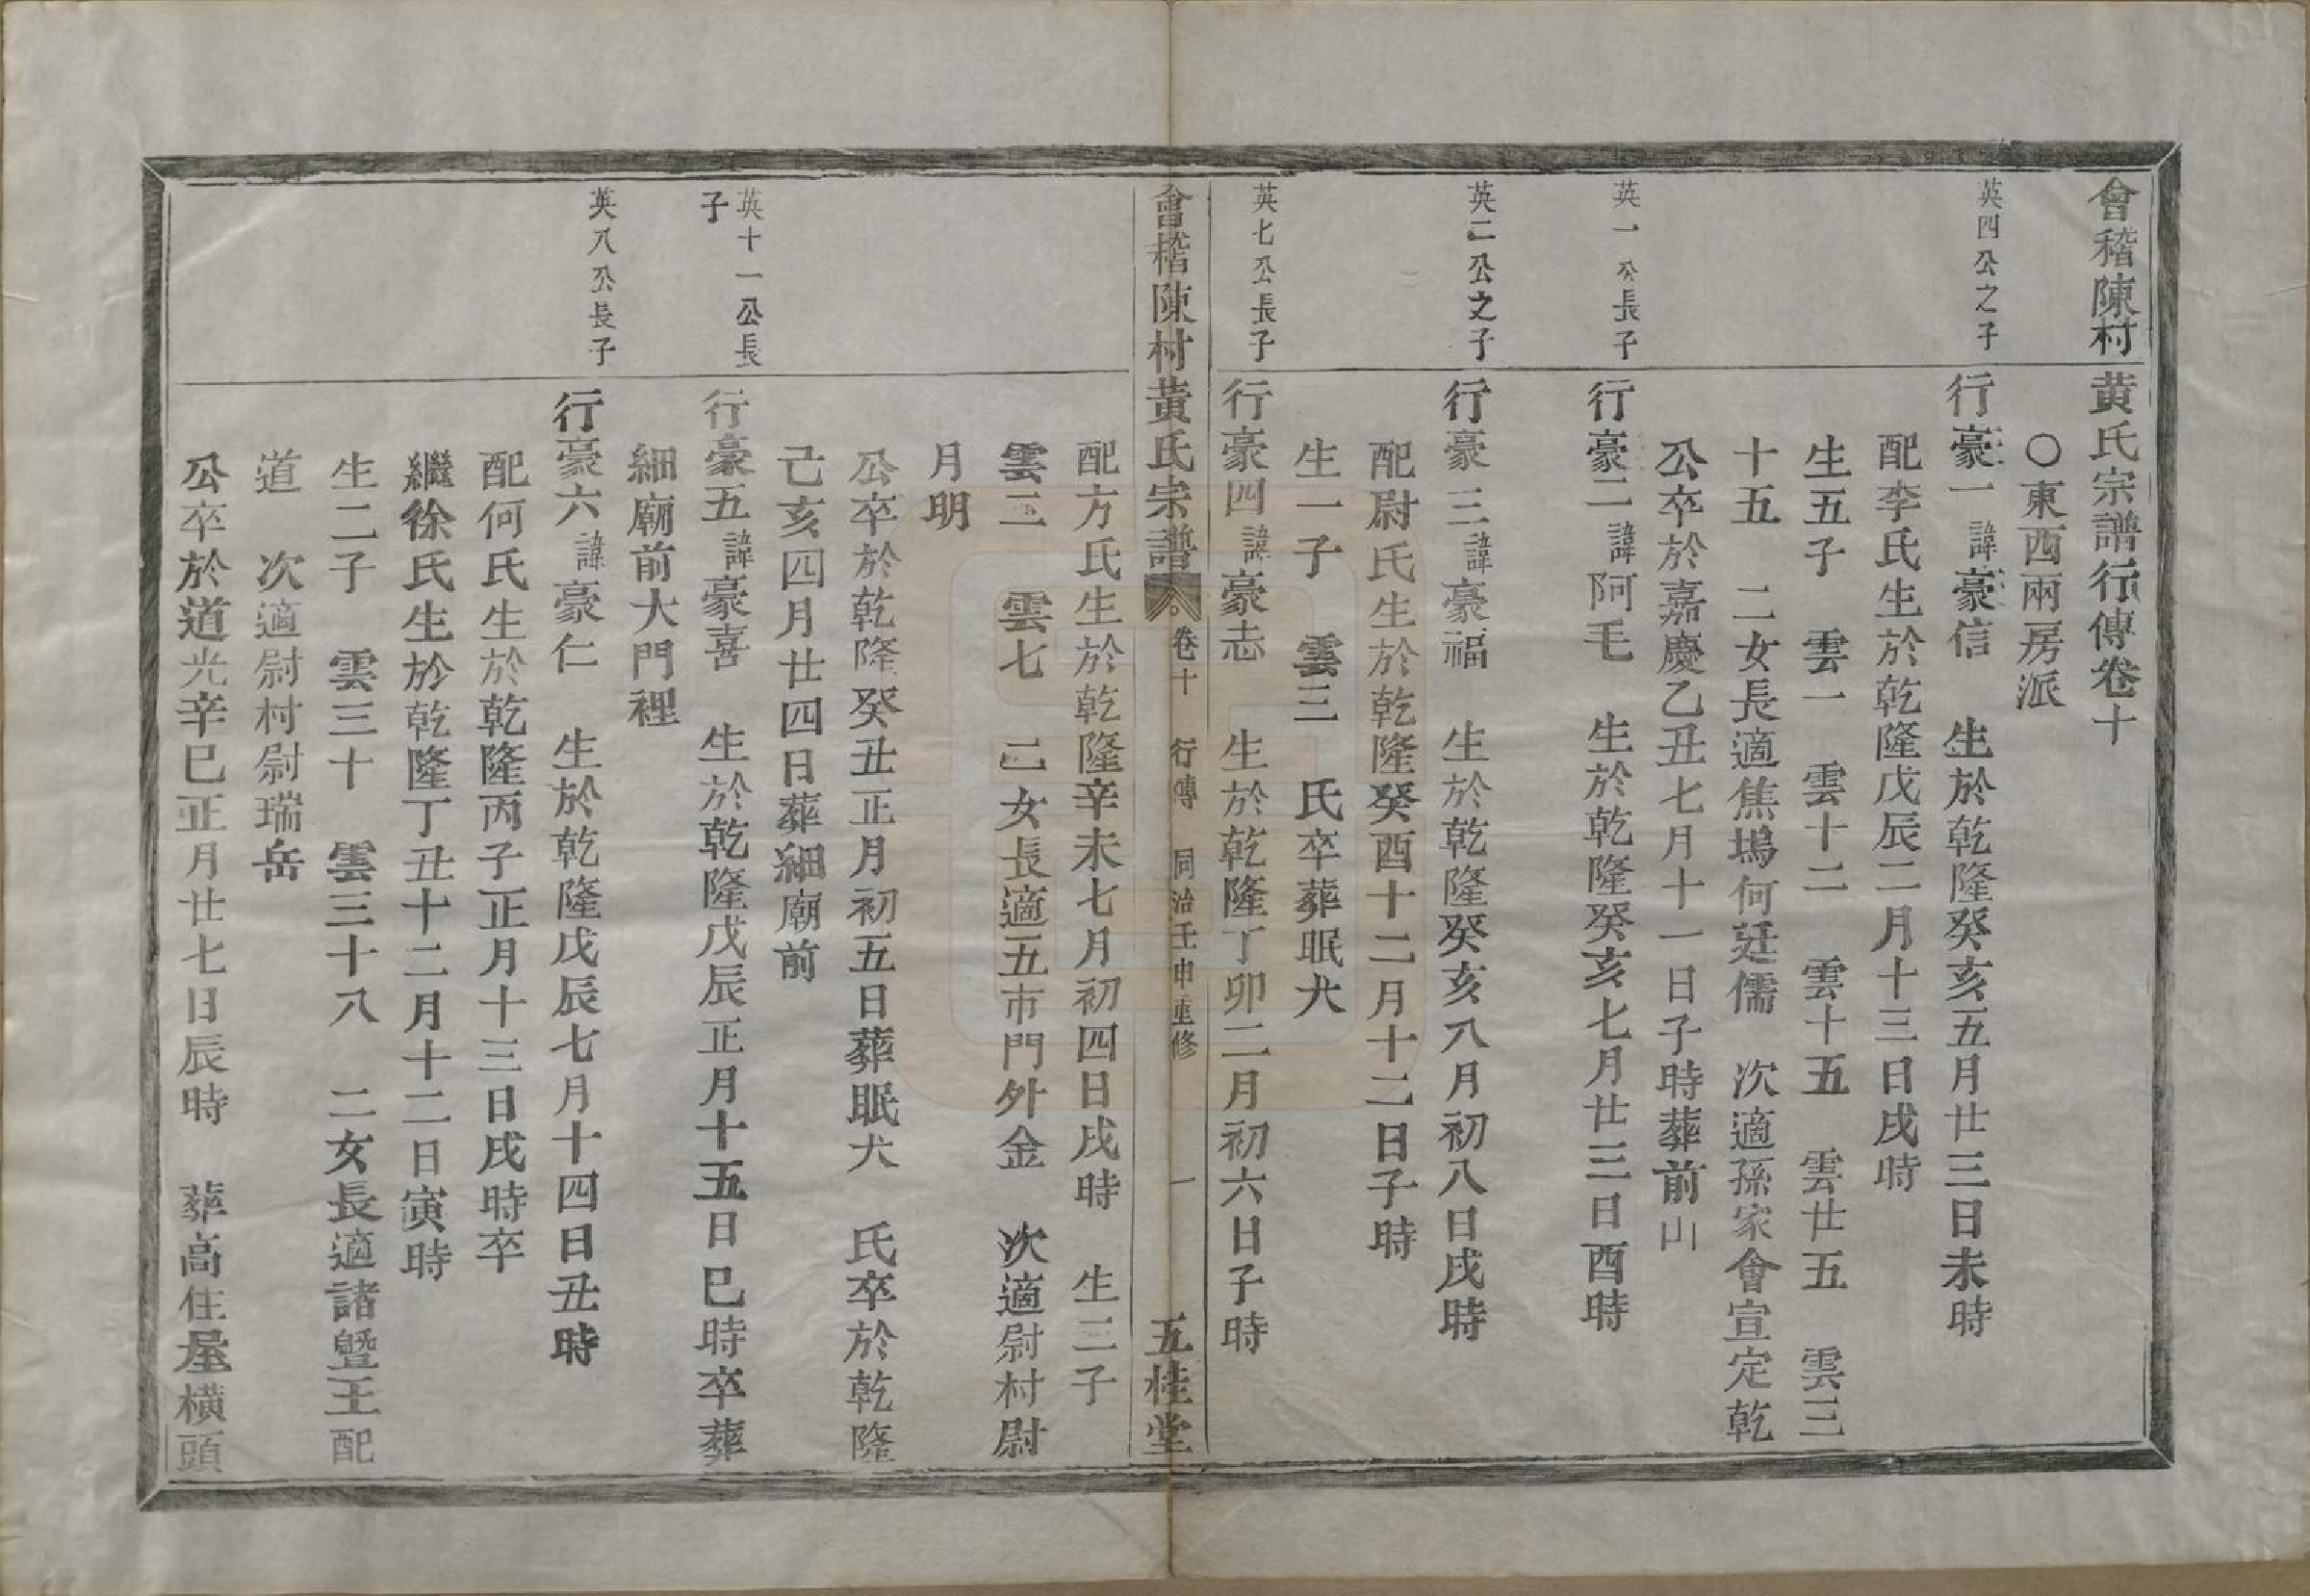 會稽陳村黃氏宗譜行傳卷十
〇東西兩房派
英四公之子
行豪一諱豪信 生於乾隆癸亥五月廿三日未時
配李氏生於乾隆戊辰二月十三日戌時
生五子 雲一 雲十二 雲十五 雲廿五 雲三
十五 二女長適焦塢何廷儒 次適孫家會宣定乾
公卒於嘉慶乙丑七月十一日子時葬前山
英一公長子
行豪二諱阿毛 生於乾隆癸亥七月廿三日酉時
英二公之子
行豪三諱豪福 生於乾隆癸亥八月初八日戌時
配尉氏生於乾隆癸酉十二月十二日子時
生一子 雲三 氏卒葬眠犬
英七公長子
行豪四諱豪志 生於乾隆丁卯二月初六日子時
會稽陳村黃氏宗譜 卷十 行傳 同治壬申重修 一 五桂堂
配方氏生於乾隆辛未七月初四日戌時 生三子
雲二 雲七 己 女長適五市門外金 次適尉村尉
月明
公卒於乾隆癸丑正月初五日葬眠犬 氏卒於乾隆
己亥四月廿四日葬細廟前
英十一公長
子
行豪五諱豪喜 生於乾隆戊辰正月十五日巳時卒葬
細廟前大門裡
英八公長子
行豪六諱豪仁 生於乾隆戊辰七月十四日丑時
配何氏生於乾隆丙子正月十三日戌時卒
繼徐氏生於乾隆丁丑十二月十二日寅時
生二子 雲三十 雲三十八 二女長適諸暨王配
道 次適尉村尉瑞岳
公卒於道光辛巳正月廿七日辰時 葬高住屋橫頭